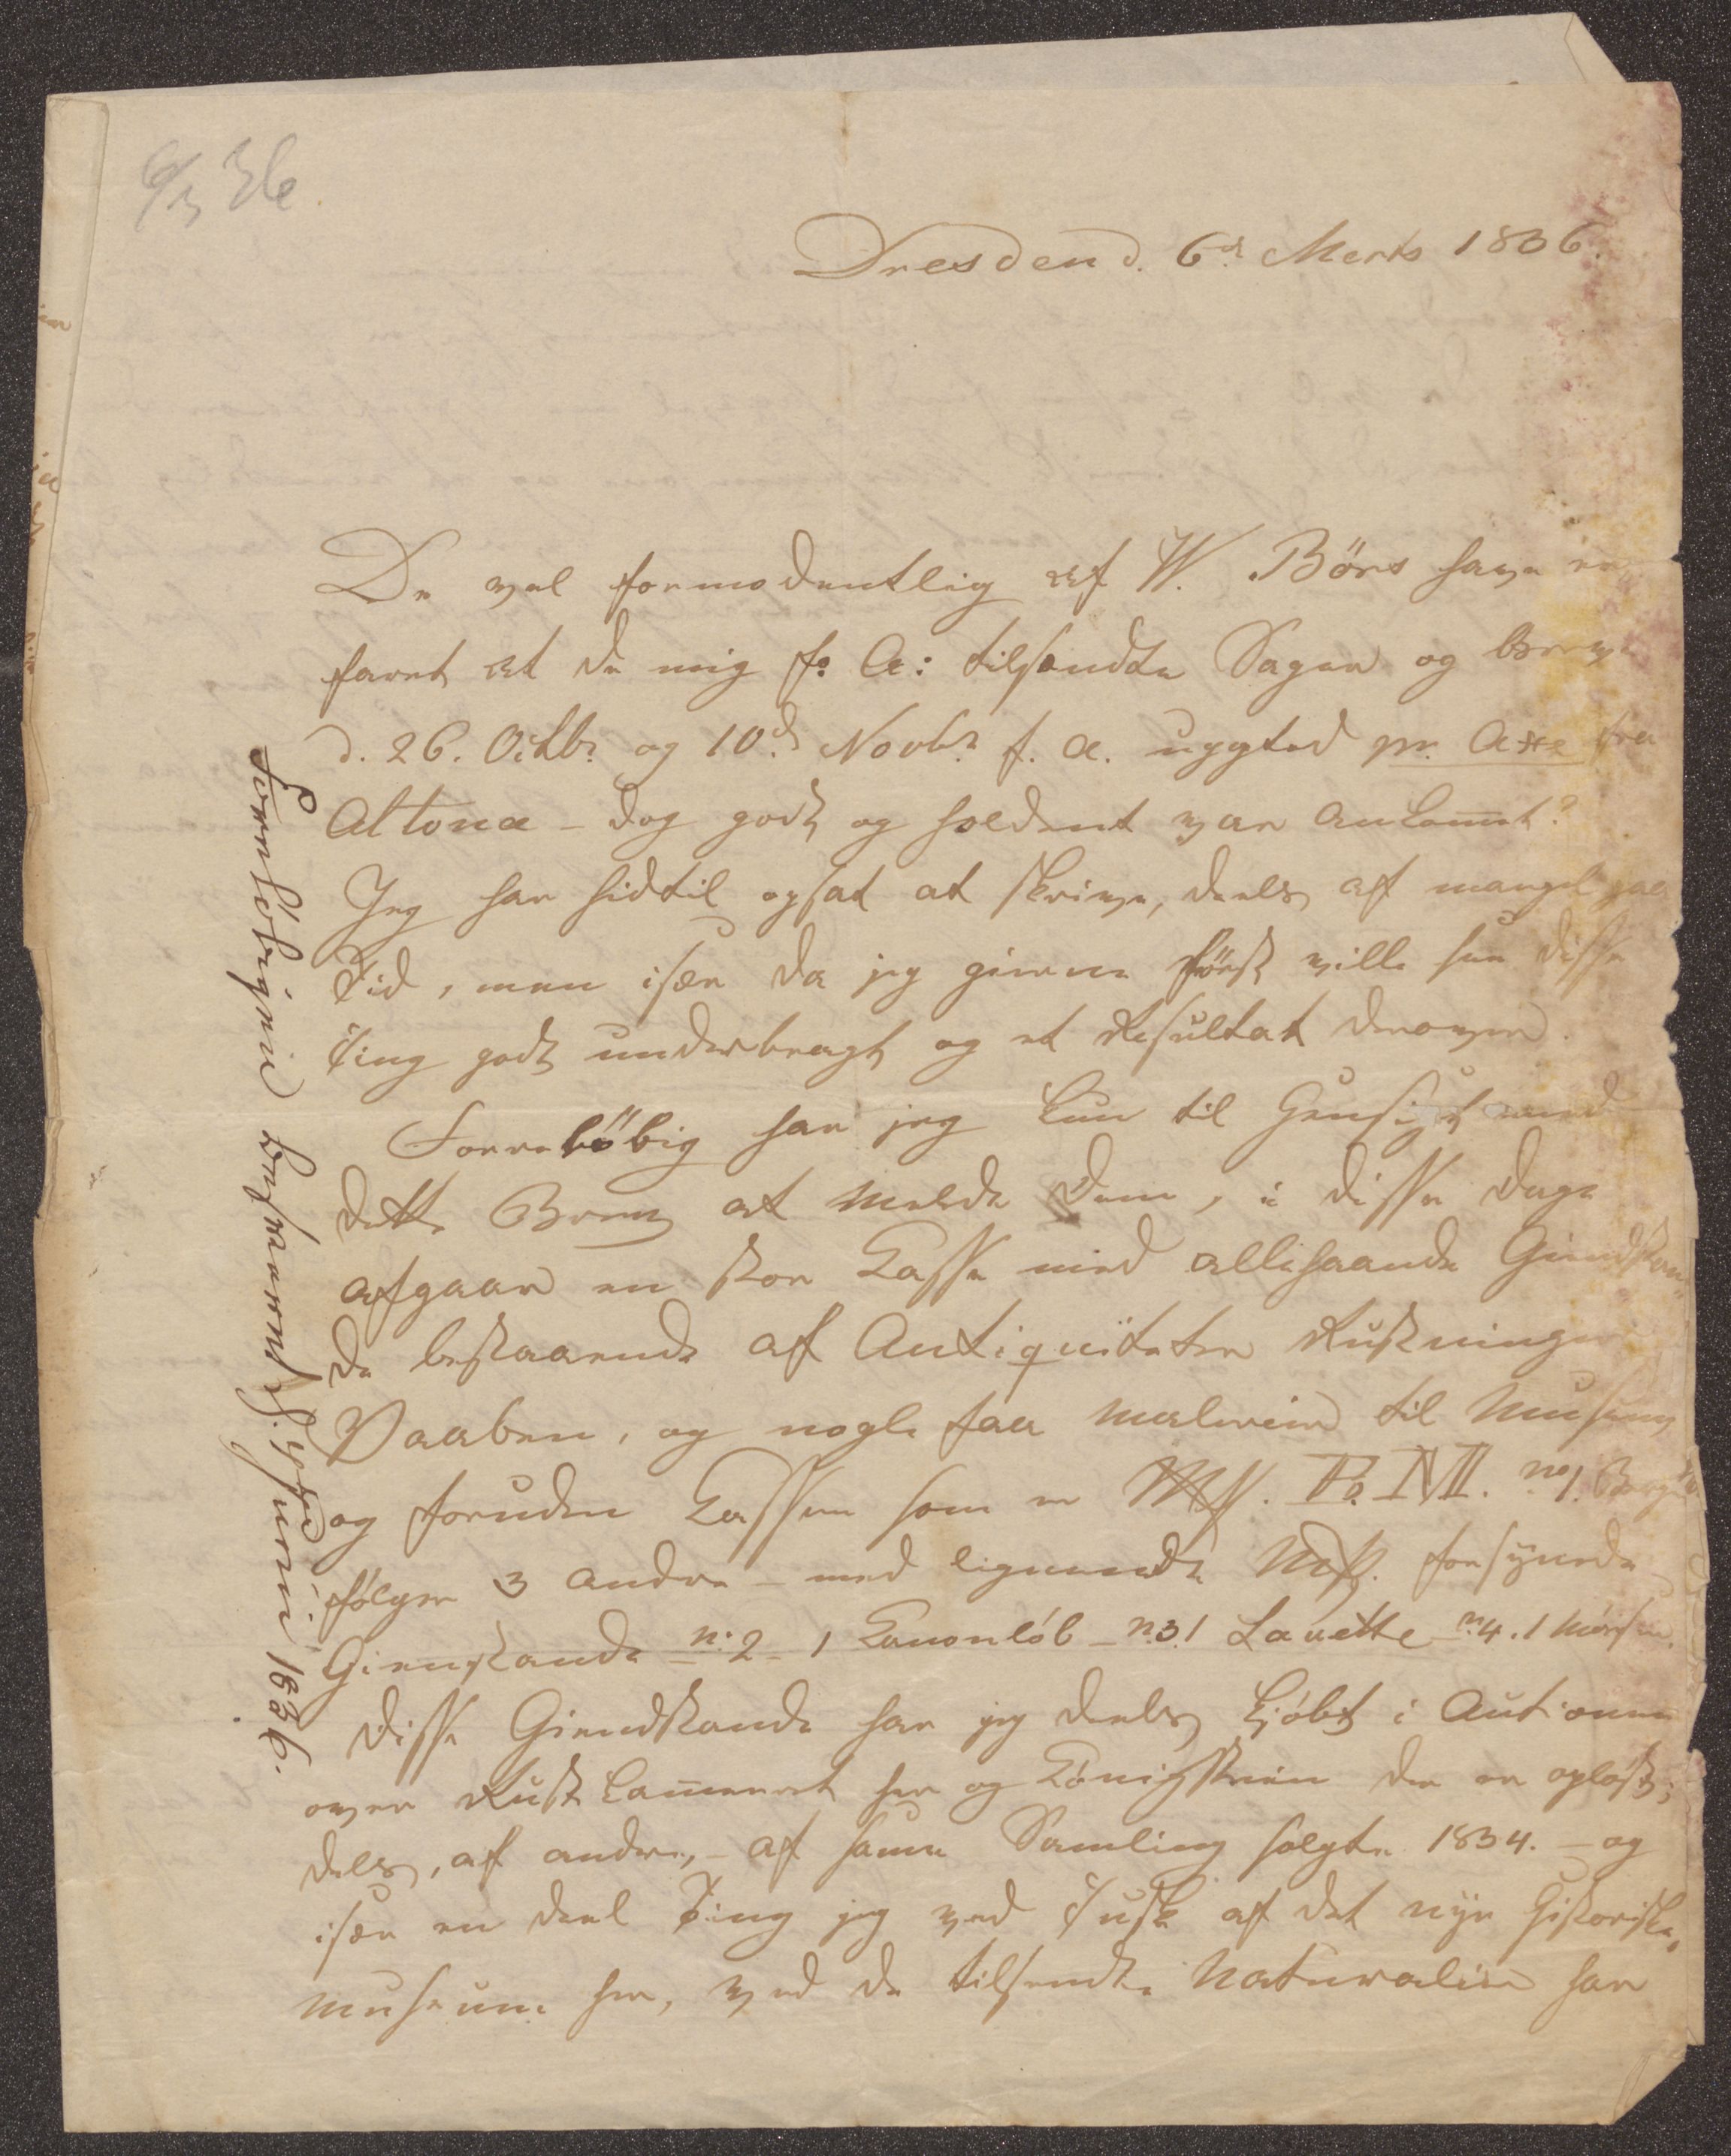 6/3 36.
Dresden d. 6d Merts 1836.
De vel formodentlig af W. Börs have er
faret at de mig f. A: tilsendte Sager og breve
d. 26. Octbr og 10d Novbr f. A. uagted pr. Axe fra
Altona – dog godt og holdent var ankomet?
Jeg har hidtil opsat at skrive, deels af mangel paa
Tid, men især da jeg gierne först ville see disse
Ting godt underbragt og et Resultat derover.
Forelöbig har jeg kun til Hensigt med
dette Brev at melde Dem, i disse Dage
afgaar en stor Kasse med allehaande Giendstan
de bestaaende af Antiquiteter Rustninger
Vaaben, og nogle faa Malerier til Museum
og foruden Kassen som er No 1.
følger 3 andre – med lignende forsynede
Gienstande No 2 – 1 Kanonlöb – No 3. 1 Lavette No 4. 1 Mörser.
Disse Giendstande har jeg deels kjöbt i Autionen
over Rustkameret her og Königstein der er oplöst;
dels, af andre, – af same Samling solgte 1834. – og
især en deel Ting jeg ved Tusk af det nye historiske
museum her, ved de tilsendte Naturalier har
Foreløbigen besvaret d. Juni 1836.